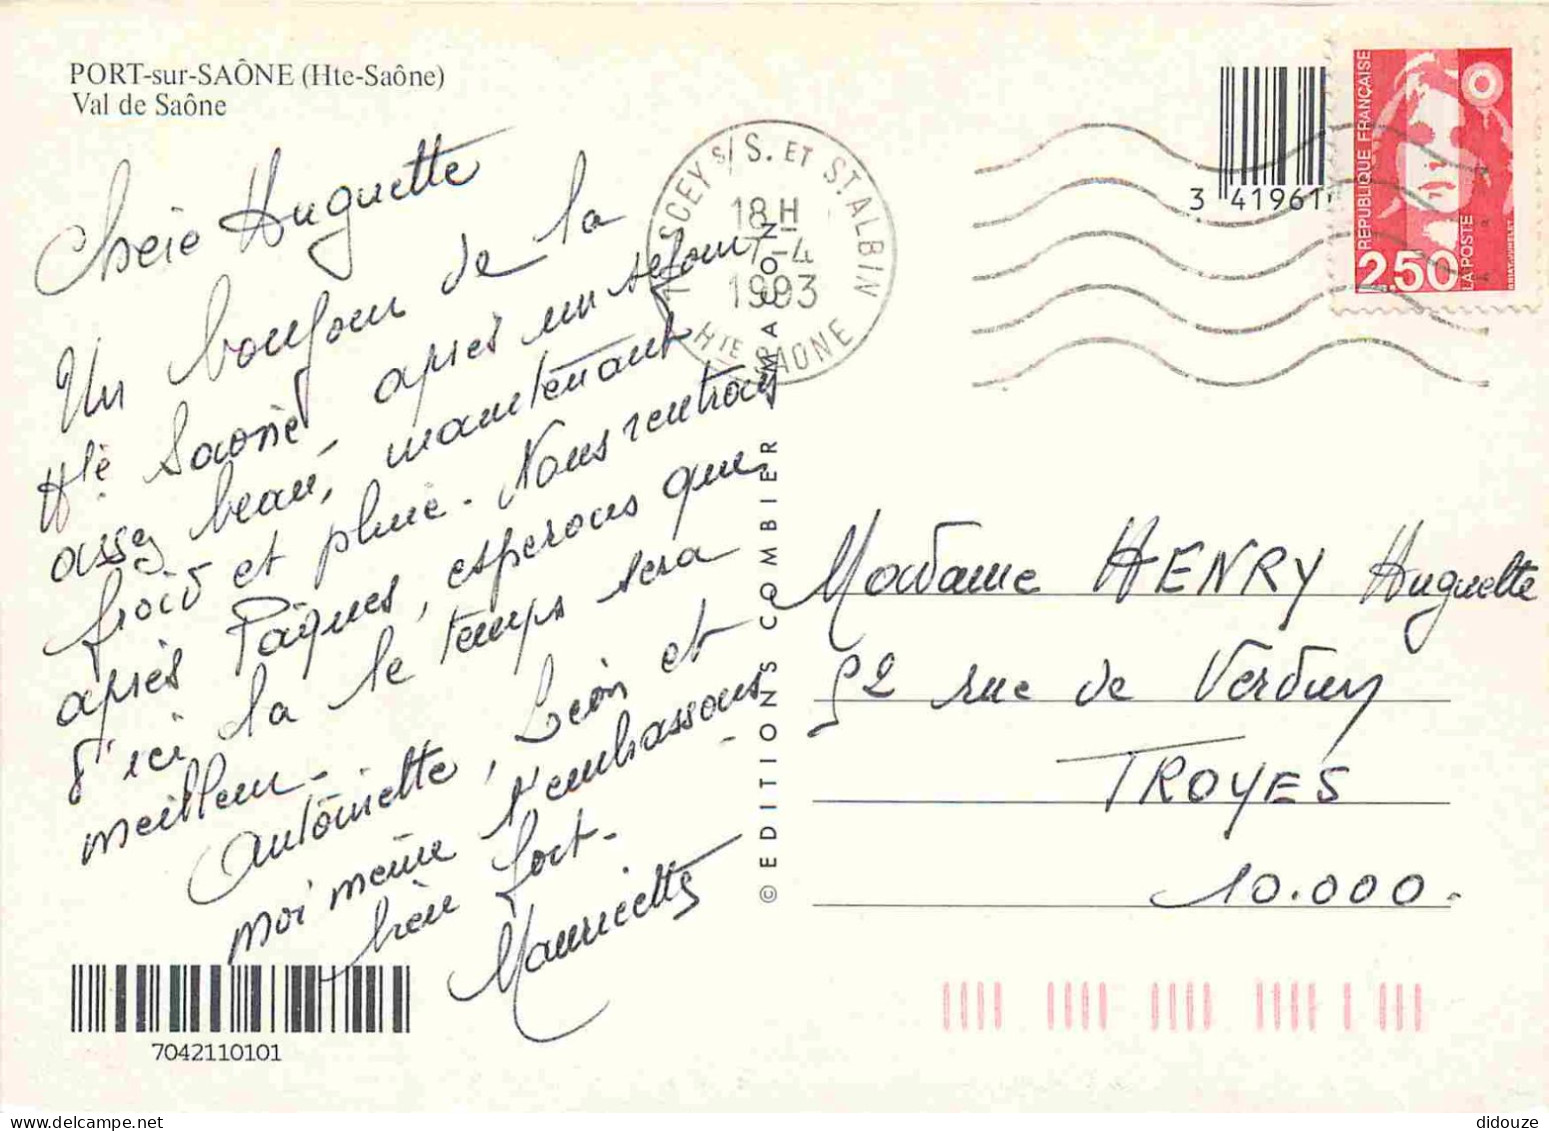 PORT-sur-SAÔNE (Hte-Saône)
Val de Saône
Chère Huguette
Un bonjour de la
Hte Saône après un séjour
assez beau, maintenant
froid et pluie. Nous rentrons
après Pâques, espérons que
d'ici la le temps sera
meilleur.
Antoinette, Léon et
moi même t'embrassons
bien fort.
Mauricette
7042110101
© EDITIONS COMBIER MACON
SCEY s/ S. ET ST. ALBIN
18 H
7-4
1993
HTE SAONE
3 41961
REPUBLIQUE FRANÇAISE
2,50
LA POSTE
Madame HENRY Huguette
52 rue de Verdun
TROYES
10.000.
didouze @ delcampe.net